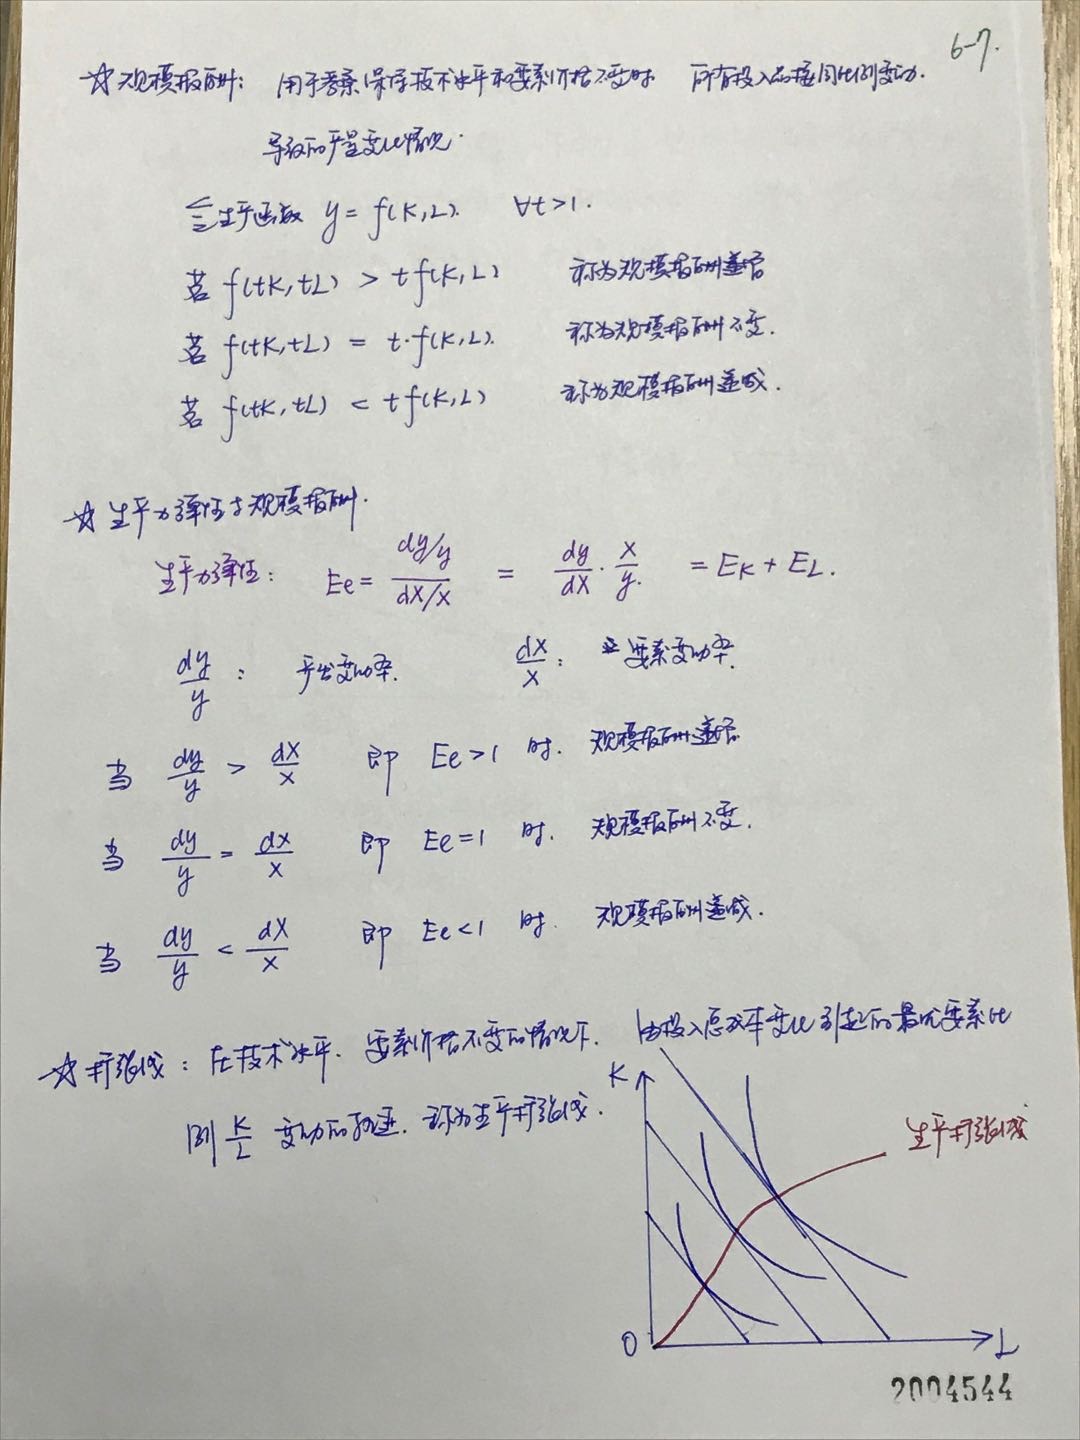 6-7.
☆ 规模报酬： 用于考察保持技术水平和要素价格不变时 所有投入品按同比例变动.
导致的产量变化情况.
生产函数 y = f(K,L). ∀t>1.
若 f(tK,tL) > tf(K,L) 称为规模报酬递增
若 f(tK,tL) = t·f(K,L). 称为规模报酬不变.
若 f(tK,tL) < tf(K,L) 称为规模报酬递减.
☆ 生产力弹性与规模报酬.
生产力弹性： Ee = (dy/y)/(dX/X) = dy/dX · X/y. = EK + EL.
dy/y ： 产出变动率. dX/X ： 要素变动率.
当 dy/y > dX/X 即 Ee>1 时. 规模报酬递增
当 dy/y = dX/X 即 Ee=1 时. 规模报酬不变.
当 dy/y < dX/X 即 Ee<1 时. 规模报酬递减.
☆ 扩张线： 在技术水平. 要素价格不变的情况下. 由投入总成本变化引起的最优要素比
例 K/L 变动的轨迹. 称为生产扩张线.
K
生产扩张线
O
L
2004544